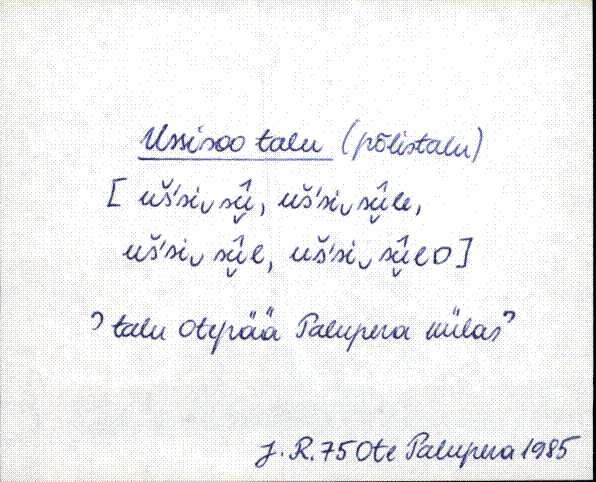 Ussisoo talu (põlistalu)
[ uš́si‿sū̬̂, uš́si‿sū̬̂le,
uš́si‿sū̬̂l, uš́si‿sū̬̂lD ]
ʾtalu Otepää Palupera külasʾ
J. R. 75 Ote Palupera 1985